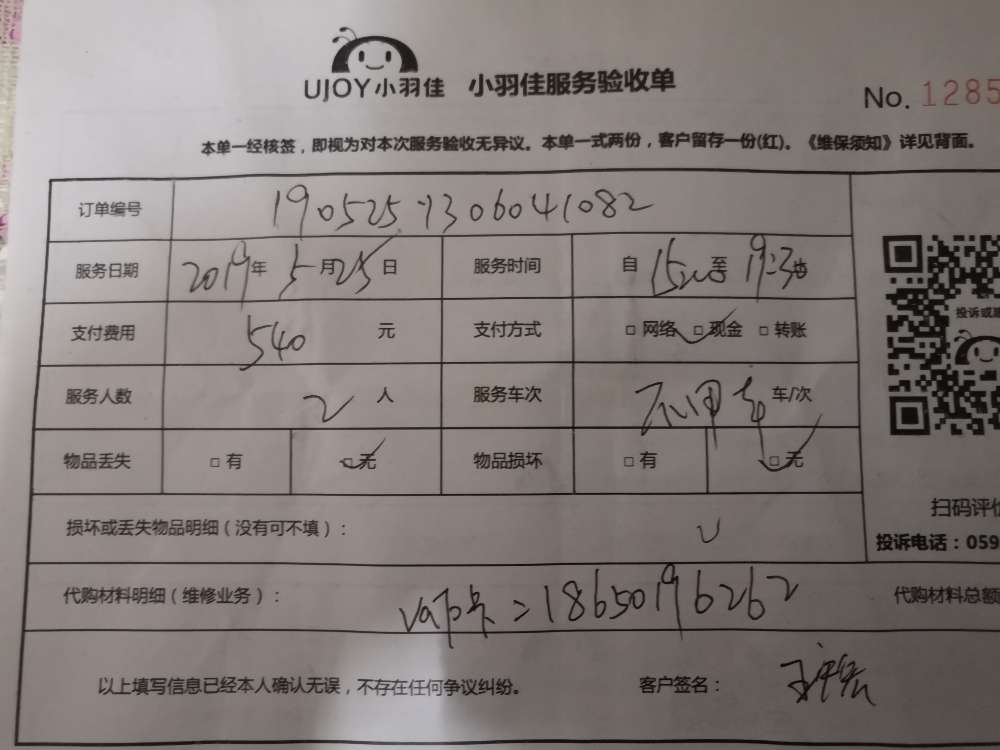 UJOY小羽佳 小羽佳服务验收单
No. 1285
本单一经核签，即视为对本次服务验收无异议。本单一式两份，客户留存一份(红)。《维保须知》详见背面。
订单编号 190525 1306041082
服务日期 2019年 5月25日 服务时间 自 至 19:30
支付费用 540 元 支付方式 □ 网络 □ 现金 □ 转账
投诉或
服务人数 2 人 服务车次 不用车 车/次
物品丢失 □ 有 □ 无 物品损坏 □ 有 □ 无
扫码评价
损坏或丢失物品明细（没有可不填）：
投诉电话：059
代购材料明细（维修业务）： 卡=18650196262 代购材料总额
以上填写信息已经本人确认无误，不存在任何争议纠纷。 客户签名：